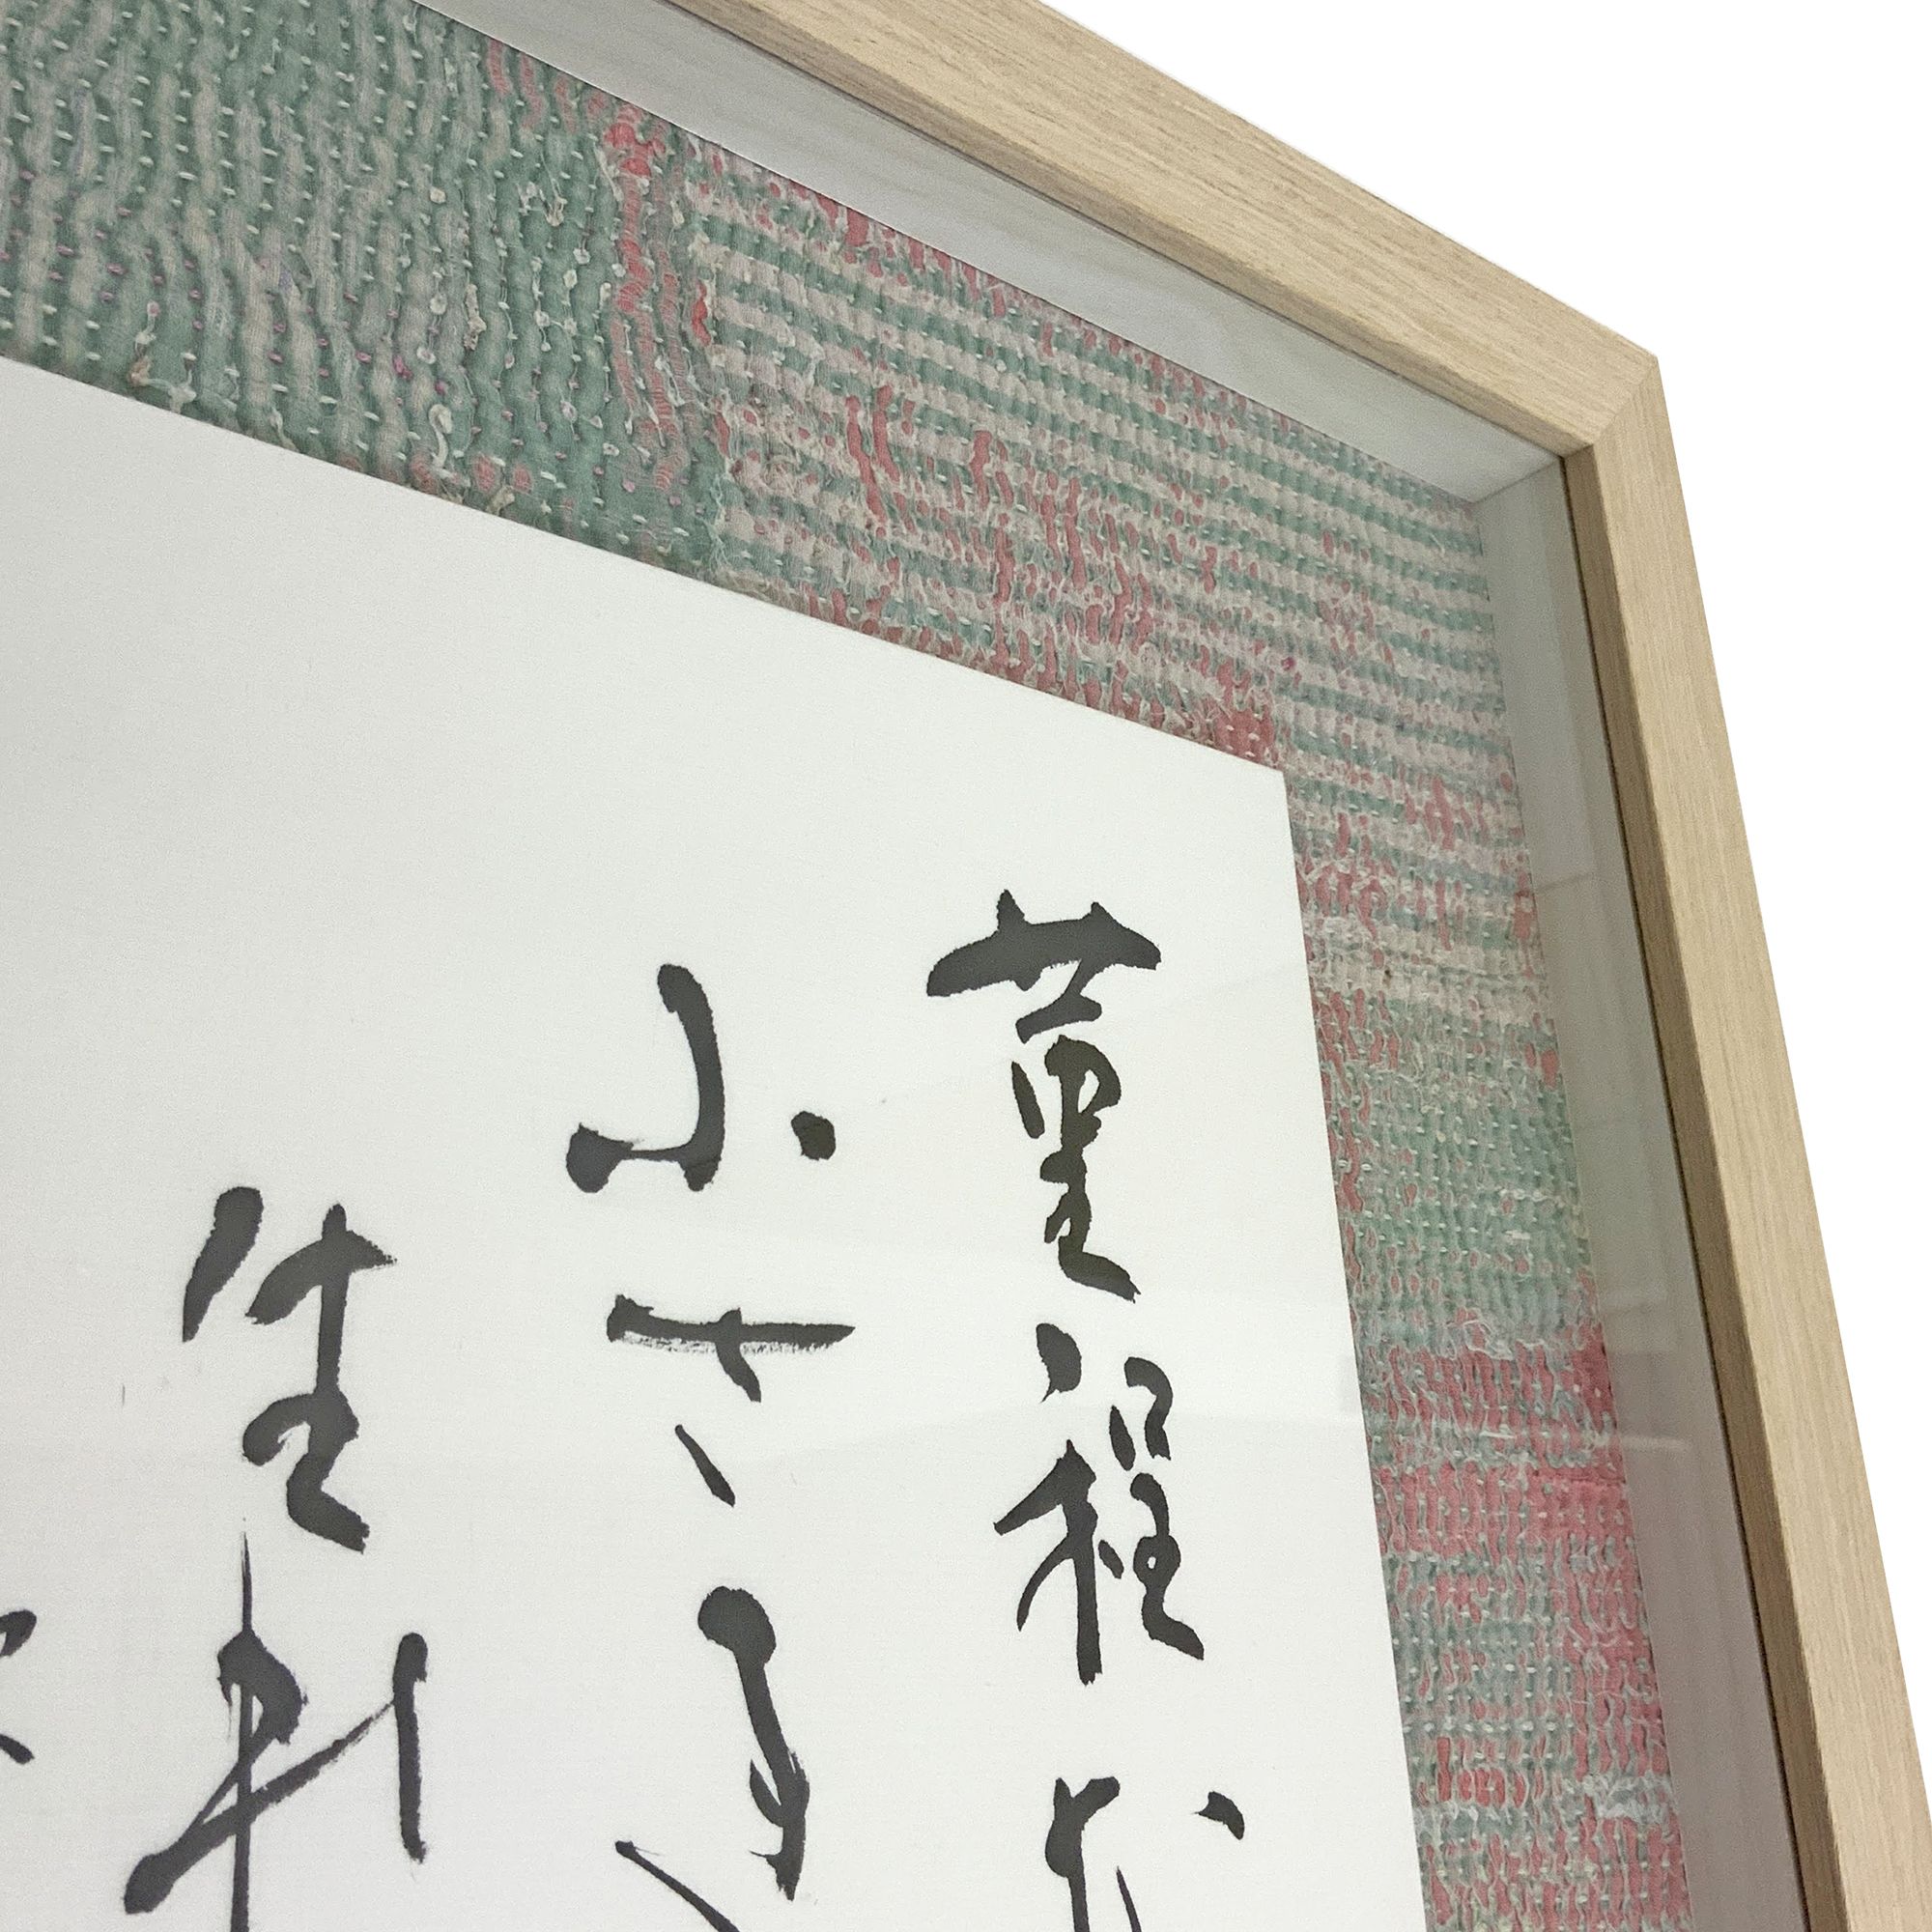 菫程な
小さき
生れ